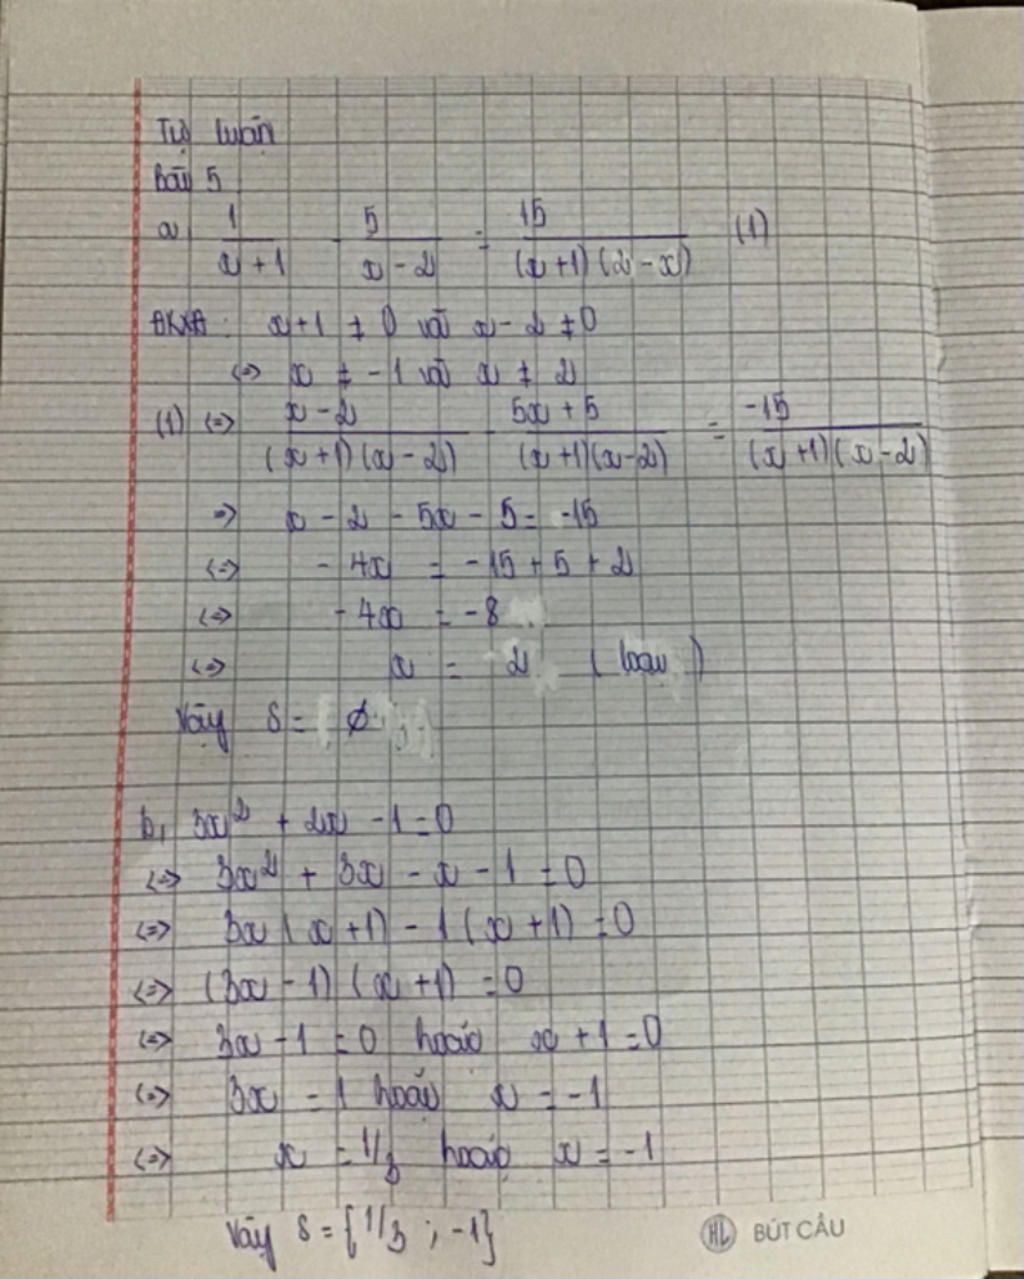 Tự luận
Bài 5
a, 1/(x+1) - 5/(x-2) = 15/((x+1)(2-x)) (1)
ĐKXĐ: x+1 ≠ 0 và x-2 ≠ 0
<=> x ≠ -1 và x ≠ 2
(1) <=> (x-2)/((x+1)(x-2)) - (5x+5)/((x+1)(x-2)) = -15/((x+1)(x-2))
=> x - 2 - 5x - 5 = -15
<=> -4x = -15 + 5 + 2
<=> -4x = -8
<=> x = 2 (loại)
Vậy S = ∅
b, 3x² + 2x - 1 = 0
<=> 3x² + 3x - x - 1 = 0
<=> 3x(x+1) - 1(x+1) = 0
<=> (3x-1)(x+1) = 0
<=> 3x - 1 = 0 hoặc x + 1 = 0
<=> 3x = 1 hoặc x = -1
<=> x = 1/3 hoặc x = -1
Vậy S = {1/3 ; -1}
HL BÚT CÂU